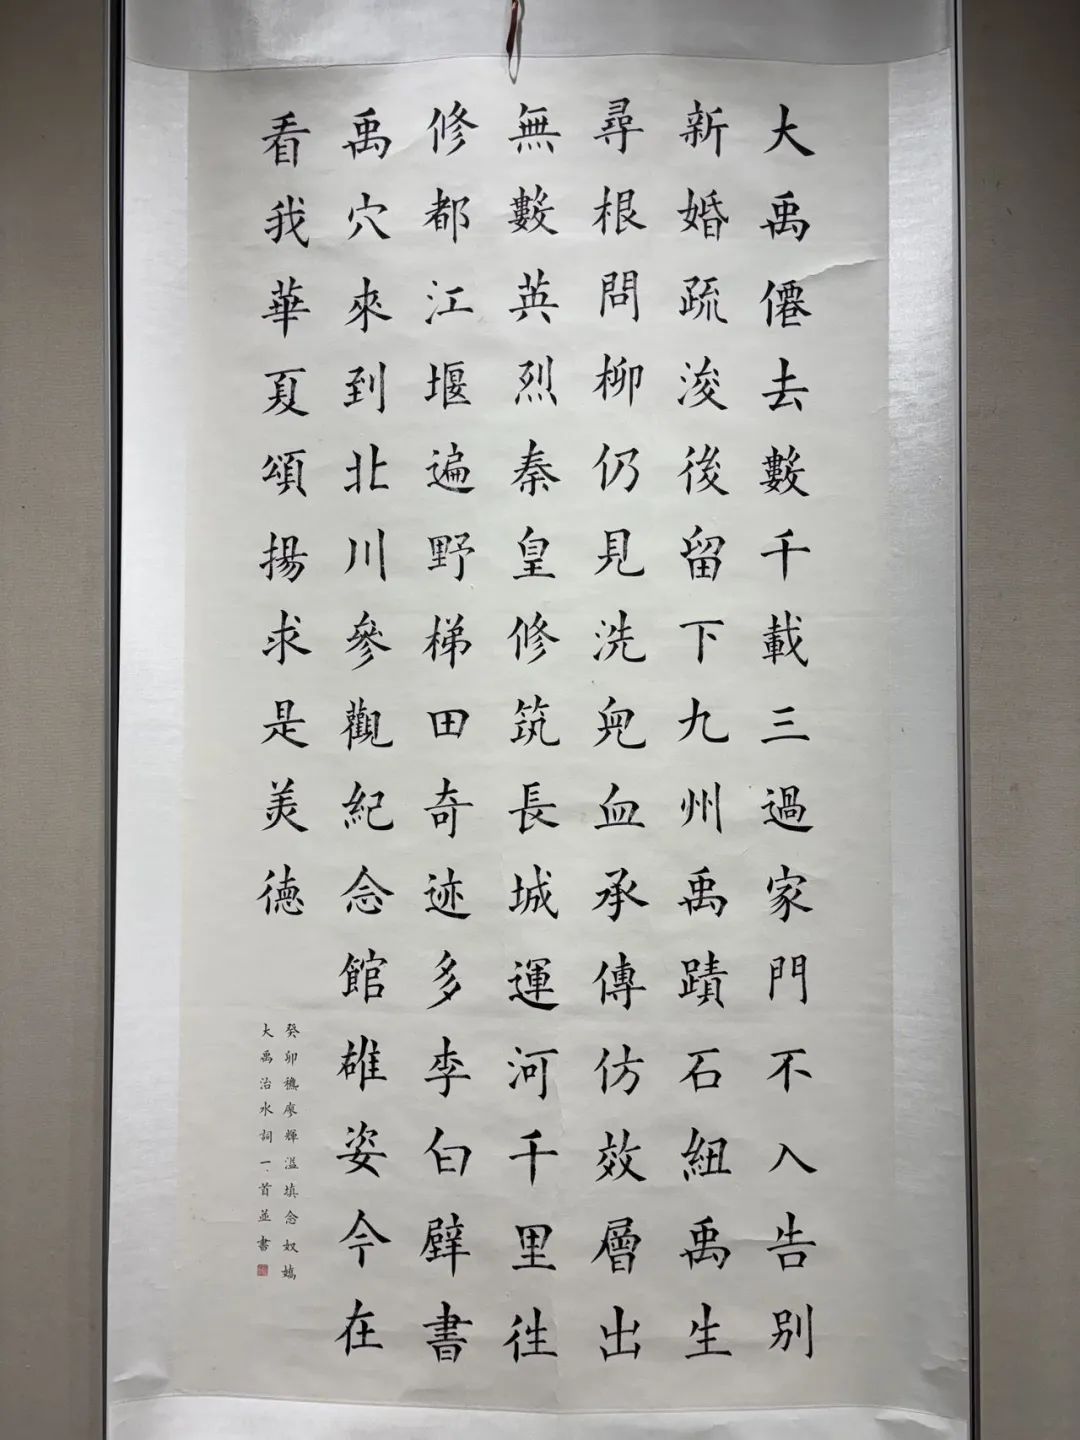 大禹僊去數千載三過家門不入告別
新婚疏浚後留下九州禹蹟石紐禹生
尋根問柳仍見洗兒血承傳仿效層出
無數英烈秦皇修筑長城運河千里往
修都江堰遍野梯田奇迹多李白壁書
禹穴來到北川參觀紀念館雄姿今在
看我華夏頌揚求是美德
癸卯穐廖輝溢填念奴嬌
大禹治水詞一首並書